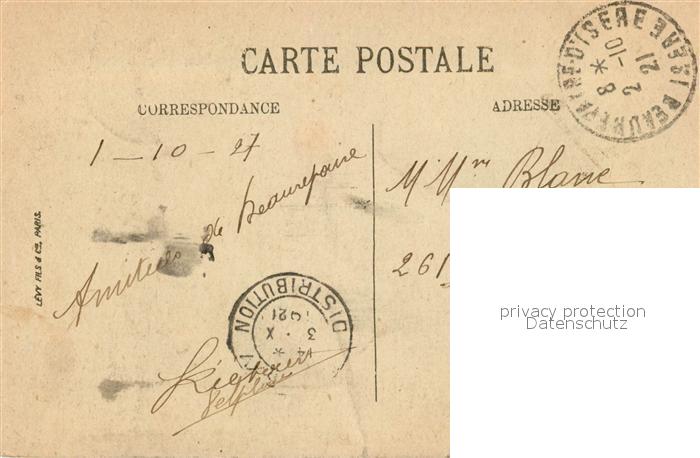 CARTE POSTALE
CORRESPONDANCE
ADRESSE
BEAUREPAIRE-D'ISERE ISERE
8 * -10
2 21
1 - 10 - 27
Amitiés de Beaurepaire
M Mme Blanc
261
LÉVY FILS & Cie, PARIS.
DISTRIBUTION
3 - X
21
privacy protection
Datenschutz